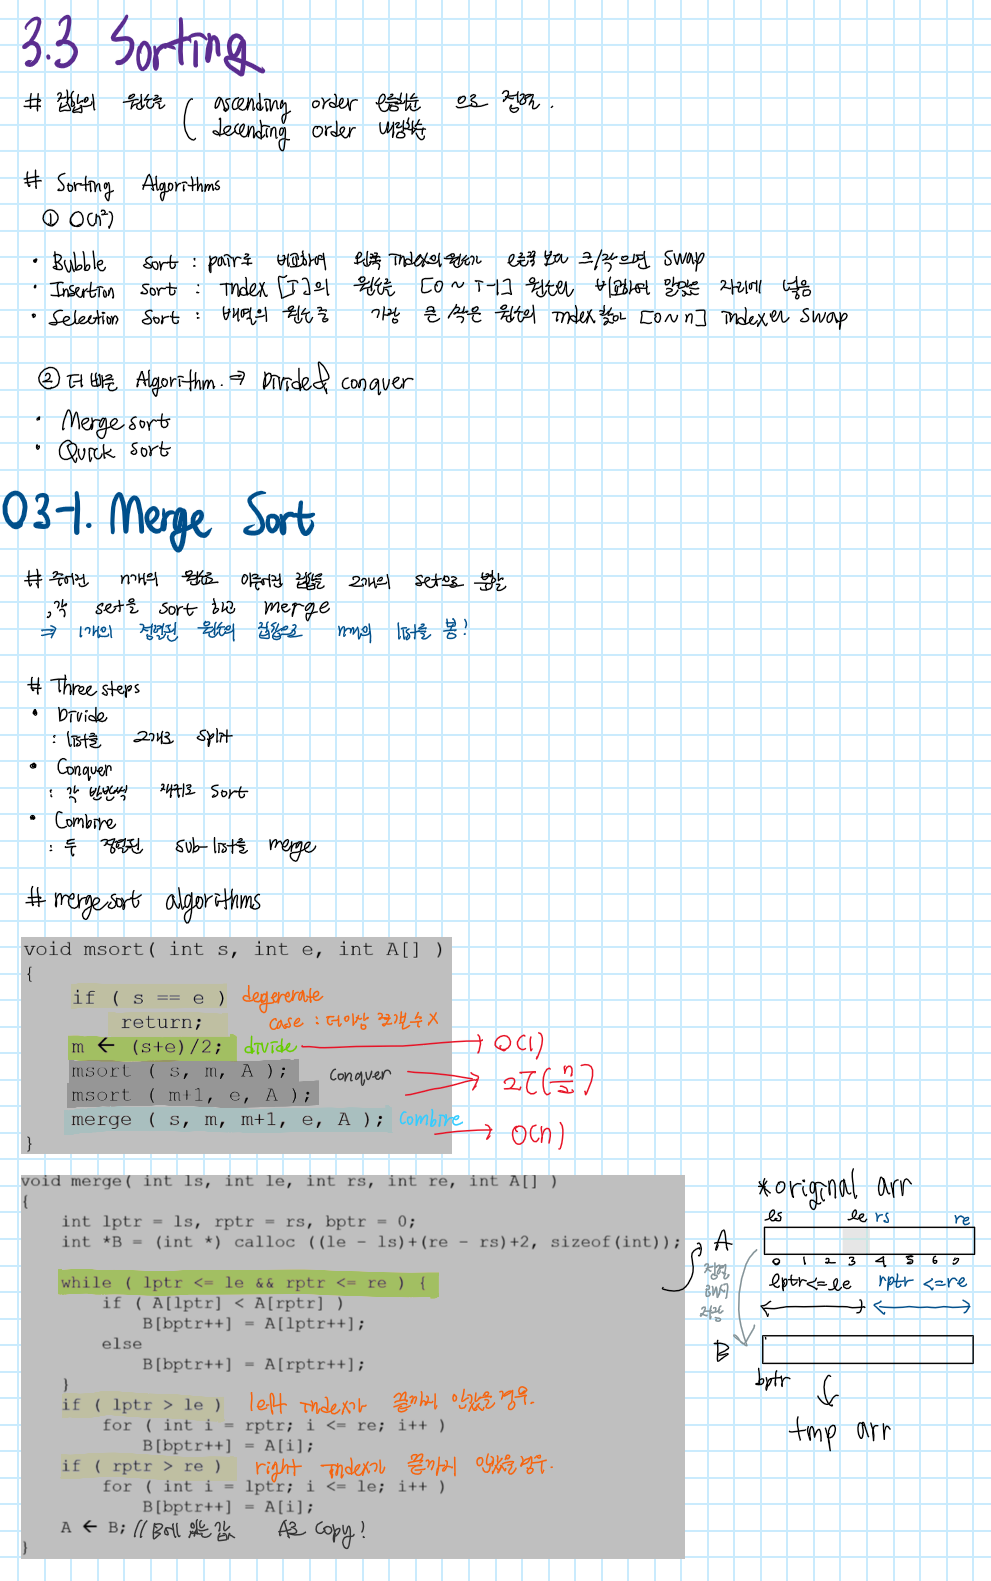 3.3 Sorting
# 집합의 원소를 ( ascending order 오름차순 으로 정렬.
decending order 내림차순
# Sorting Algorithms
① O(n²)
· Bubble sort : pair로 비교하여 왼쪽 index의 원소가 오른쪽 보다 크/작으면 swap
· Insertion sort : index [i]의 원소를 [0 ~ i-1] 원소와 비교하여 알맞은 자리에 넣음
· Selection sort : 배열의 원소 중 가장 큰/작은 원소의 index 찾아 [0~n] index와 swap
② 더 빠른 Algorithm. ⇒ Divide & conquer
· Merge sort
· Quick sort
03-1. Merge Sort
# 주어진 n개의 원소로 이루어진 집합을 2개의 set으로 분할
, 각 set을 sort 하고 merge
⇒ 1개의 정렬된 원소의 집합으로 n개의 list를 봄!
# Three steps
· Divide
: list를 2개로 split
· Conquer
: 각 반반씩 재귀로 sort
· Combine
: 두 정렬된 sub-list를 merge
# merge sort algorithms
void msort( int s, int e, int A[] )
{
if ( s == e ) degererate
return; case : 더이상 쪼갤 수 X
m ← (s+e)/2; divide → O(1)
msort ( s, m, A ); conquer → 2T(n/2)
msort ( m+1, e, A );
merge ( s, m, m+1, e, A ); combine → O(n)
}
void merge( int ls, int le, int rs, int re, int A[] )
{
int lptr = ls, rptr = rs, bptr = 0;
int *B = (int *) calloc ((le - ls)+(re - rs)+2, sizeof(int));
while ( lptr <= le && rptr <= re ) {
if ( A[lptr] < A[rptr] )
B[bptr++] = A[lptr++];
else
B[bptr++] = A[rptr++];
}
if ( lptr > le ) left index가 끝까지 안갔을 경우.
for ( int i = rptr; i <= re; i++ )
B[bptr++] = A[i];
if ( rptr > re ) right index가 끝까지 안갔을 경우.
for ( int i = lptr; i <= le; i++ )
B[bptr++] = A[i];
A ← B; // B에 있는 값 A로 copy!
}
*original arr
ls le rs re
A
0 1 2 3 4 5 6 7
lptr<=le rptr <=re
정렬
해서
저장
B
bptr
tmp arr